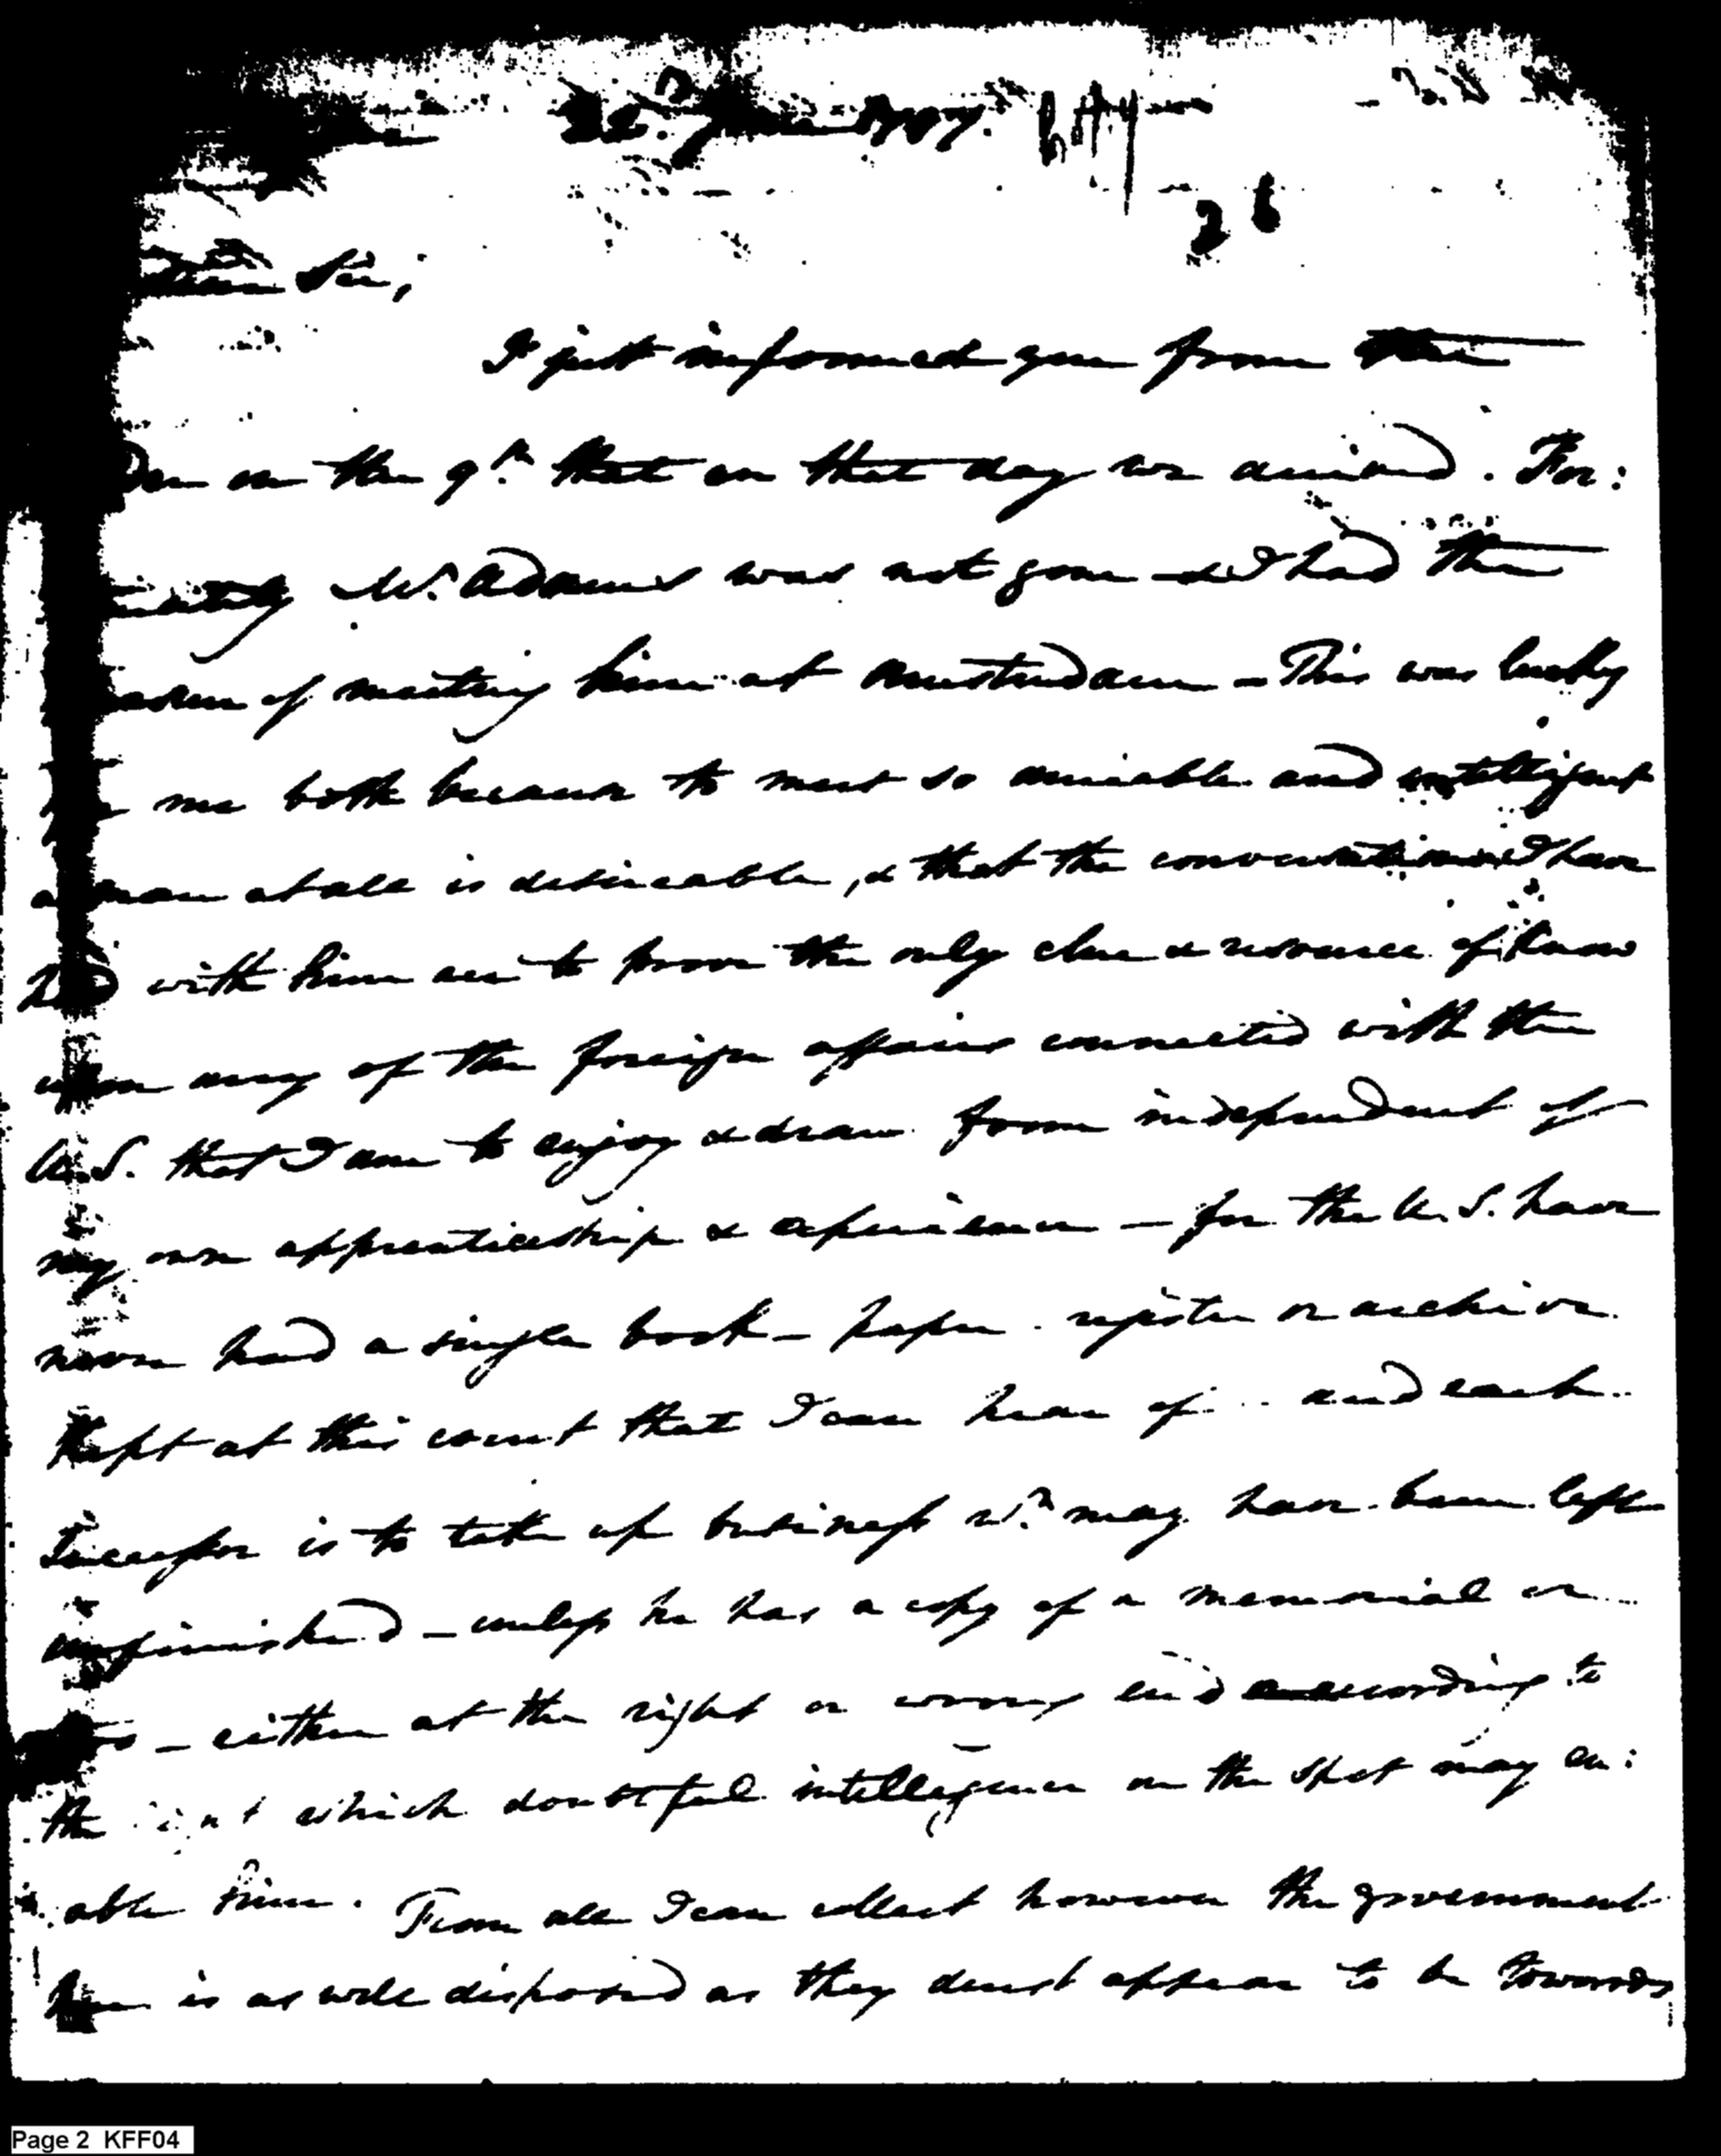 Dear Sir,
I just informed you from the
on the 9th that on that day we arrived. For:
Mr. Adams was not gone & I had the
of meeting him at Amsterdam – This was lucky
me both because to meet so amiable and intelligent
a man at all is desireable, & that the conversations I have
had with him are to prove the only clue & resource of know
any of the foreign affairs connected with the
U.S. that I am to enjoy & draw from independent of
my own apprenticeship & experience – for the U.S. have
never had a single book – paper – register or archive
kept at this court that I can hear of – and each
Successor is to take up business wh. may have been left
unfinished – unless he has a copy of a memorial or
– either at the right or wrong end according to
the which doubtful intelligence on the spot may en:
able him. From all I can collect however the government
here is as well disposed as they durst appear to be towards
Page 2 KFF04